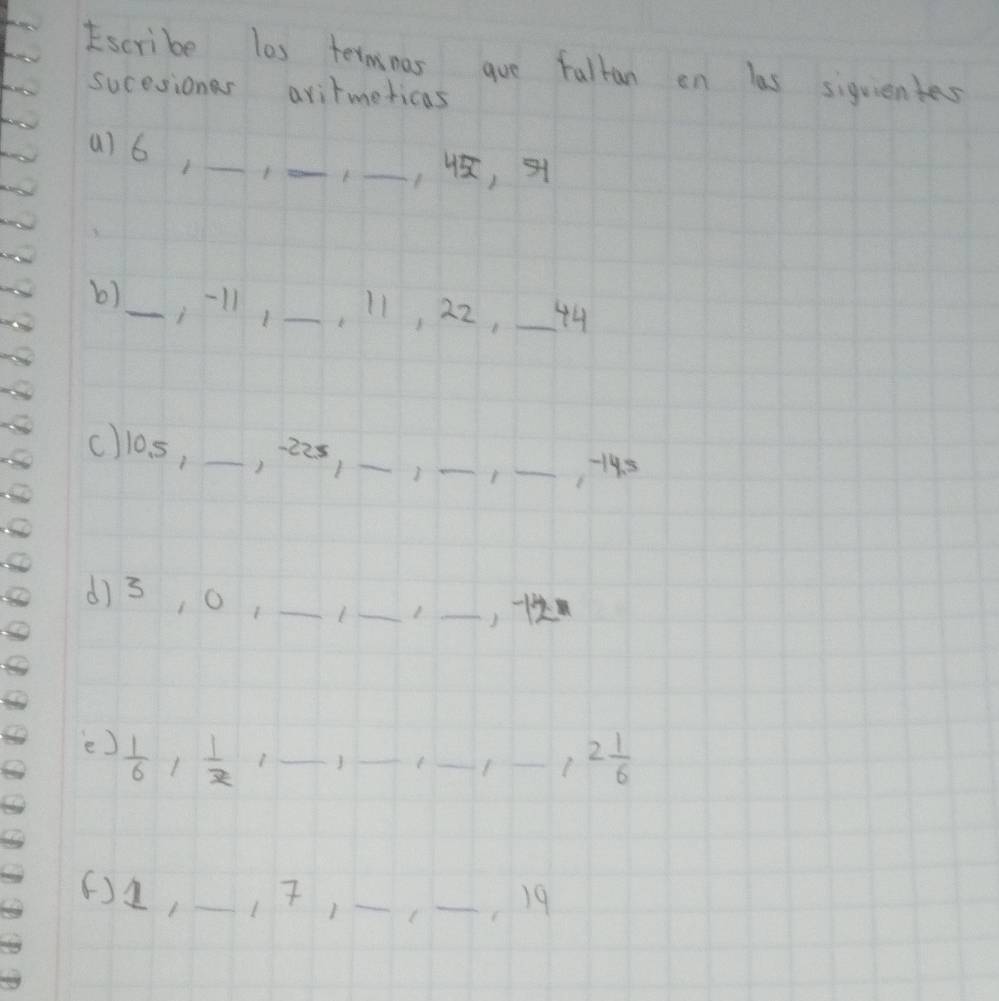 Escribe los terminos que faltan en las siguientes
sucesiones aritmeticas
a) 6, _, _, _, 45, 
b) _, -11, _, 11, 22, _ 44
c) 10.5, _, -22.5, _, _, _, -14.5
d) 3, 0, _, _, _, -12
e) 1/6, 1/2, _, _, _, _, 2 1/6
f) 1, _, 7, _, _, 19